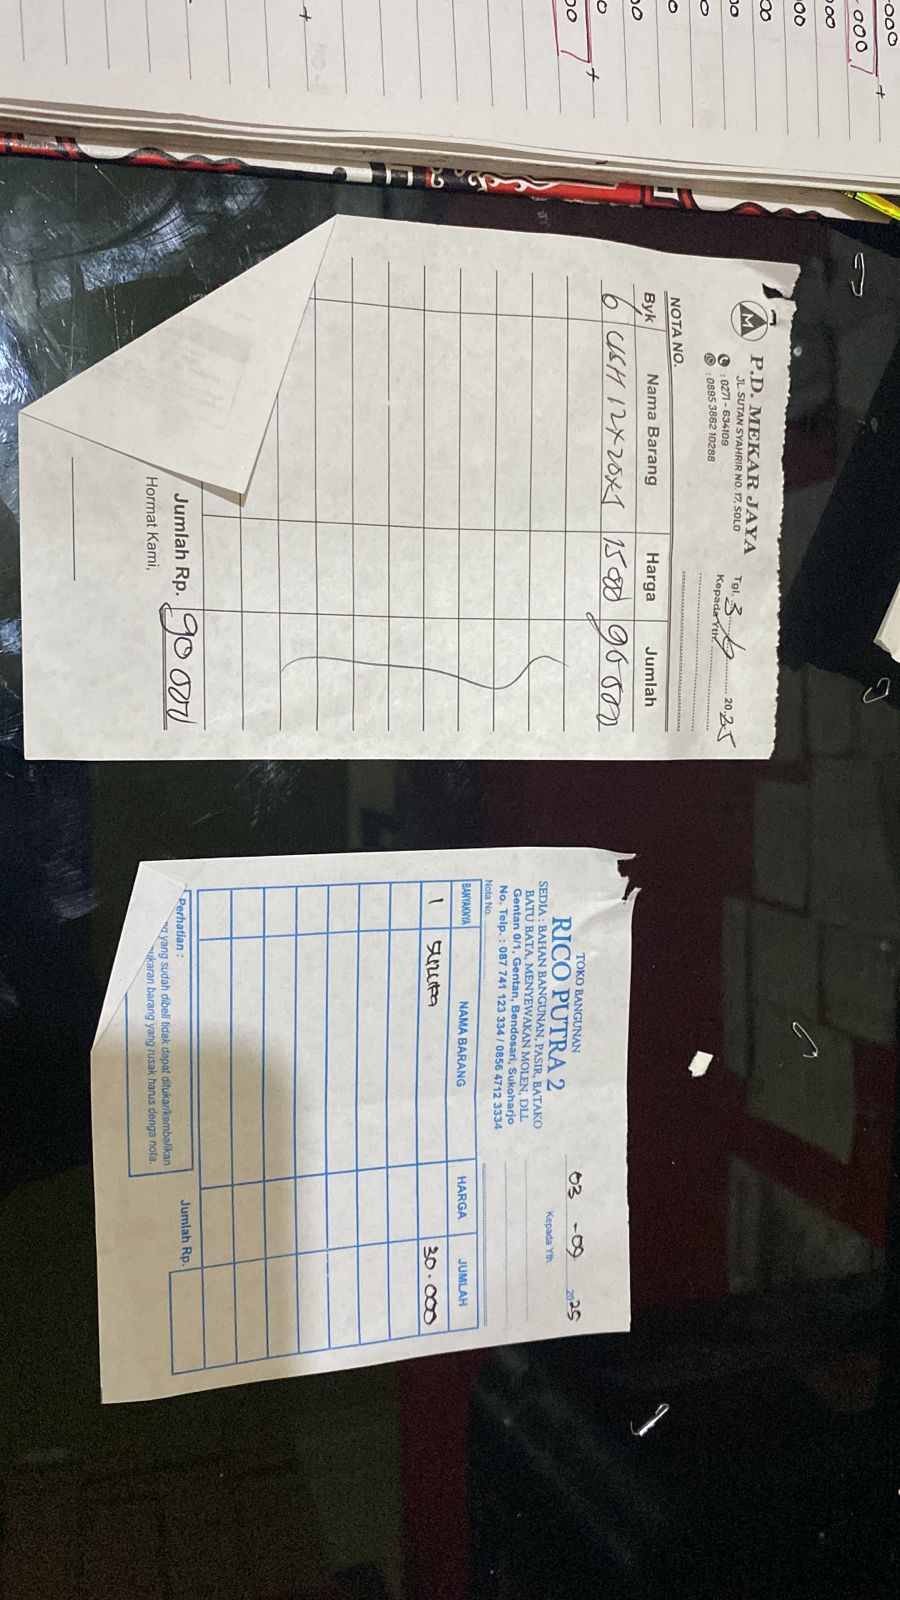 P.D. MEKAR JAYA
JL. SUTAN SYAHRIR NO. 17, SOLO
: 0271 - 634109
: 0895 3862 10288
Tgl. 3 20 25
Kepada Yth.
NOTA NO.
Byk Nama Barang Harga Jumlah
6 12x20x5 1500 90 000
Jumlah Rp. 90 000
Hormat Kami,
TOKO BANGUNAN
RICO PUTRA 2
SEDIA : BAHAN BANGUNAN, PASIR, BATAKO
BATU BATA, MENYEWAKAN MOLEN, DLL
Gentan 0/1, Gentan, Bendosari, Sukoharjo
No. Telp. : 087 741 123 334 / 0856 4712 3334
03 - 09 2025
Kepada Yth.
Nota No.
BANYAKNYA NAMA BARANG HARGA JUMLAH
1 30.000
Perhatian :
yang sudah dibeli tidak dapat ditukar/kembalikan
ukaran barang yang rusak harus denga nota.
Jumlah Rp.